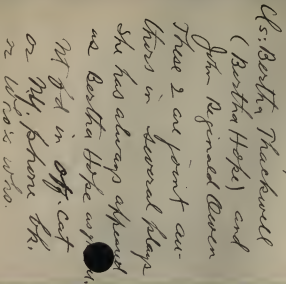 Cls: Bertha Thackwell
(Bertha Hope) and
John Reginald Owen
These 2 are joint au-
thors in several plays
She has always appeared
as Bertha Hope as
Not f'd in off cat
or NY. phone bk.
n Who's who.